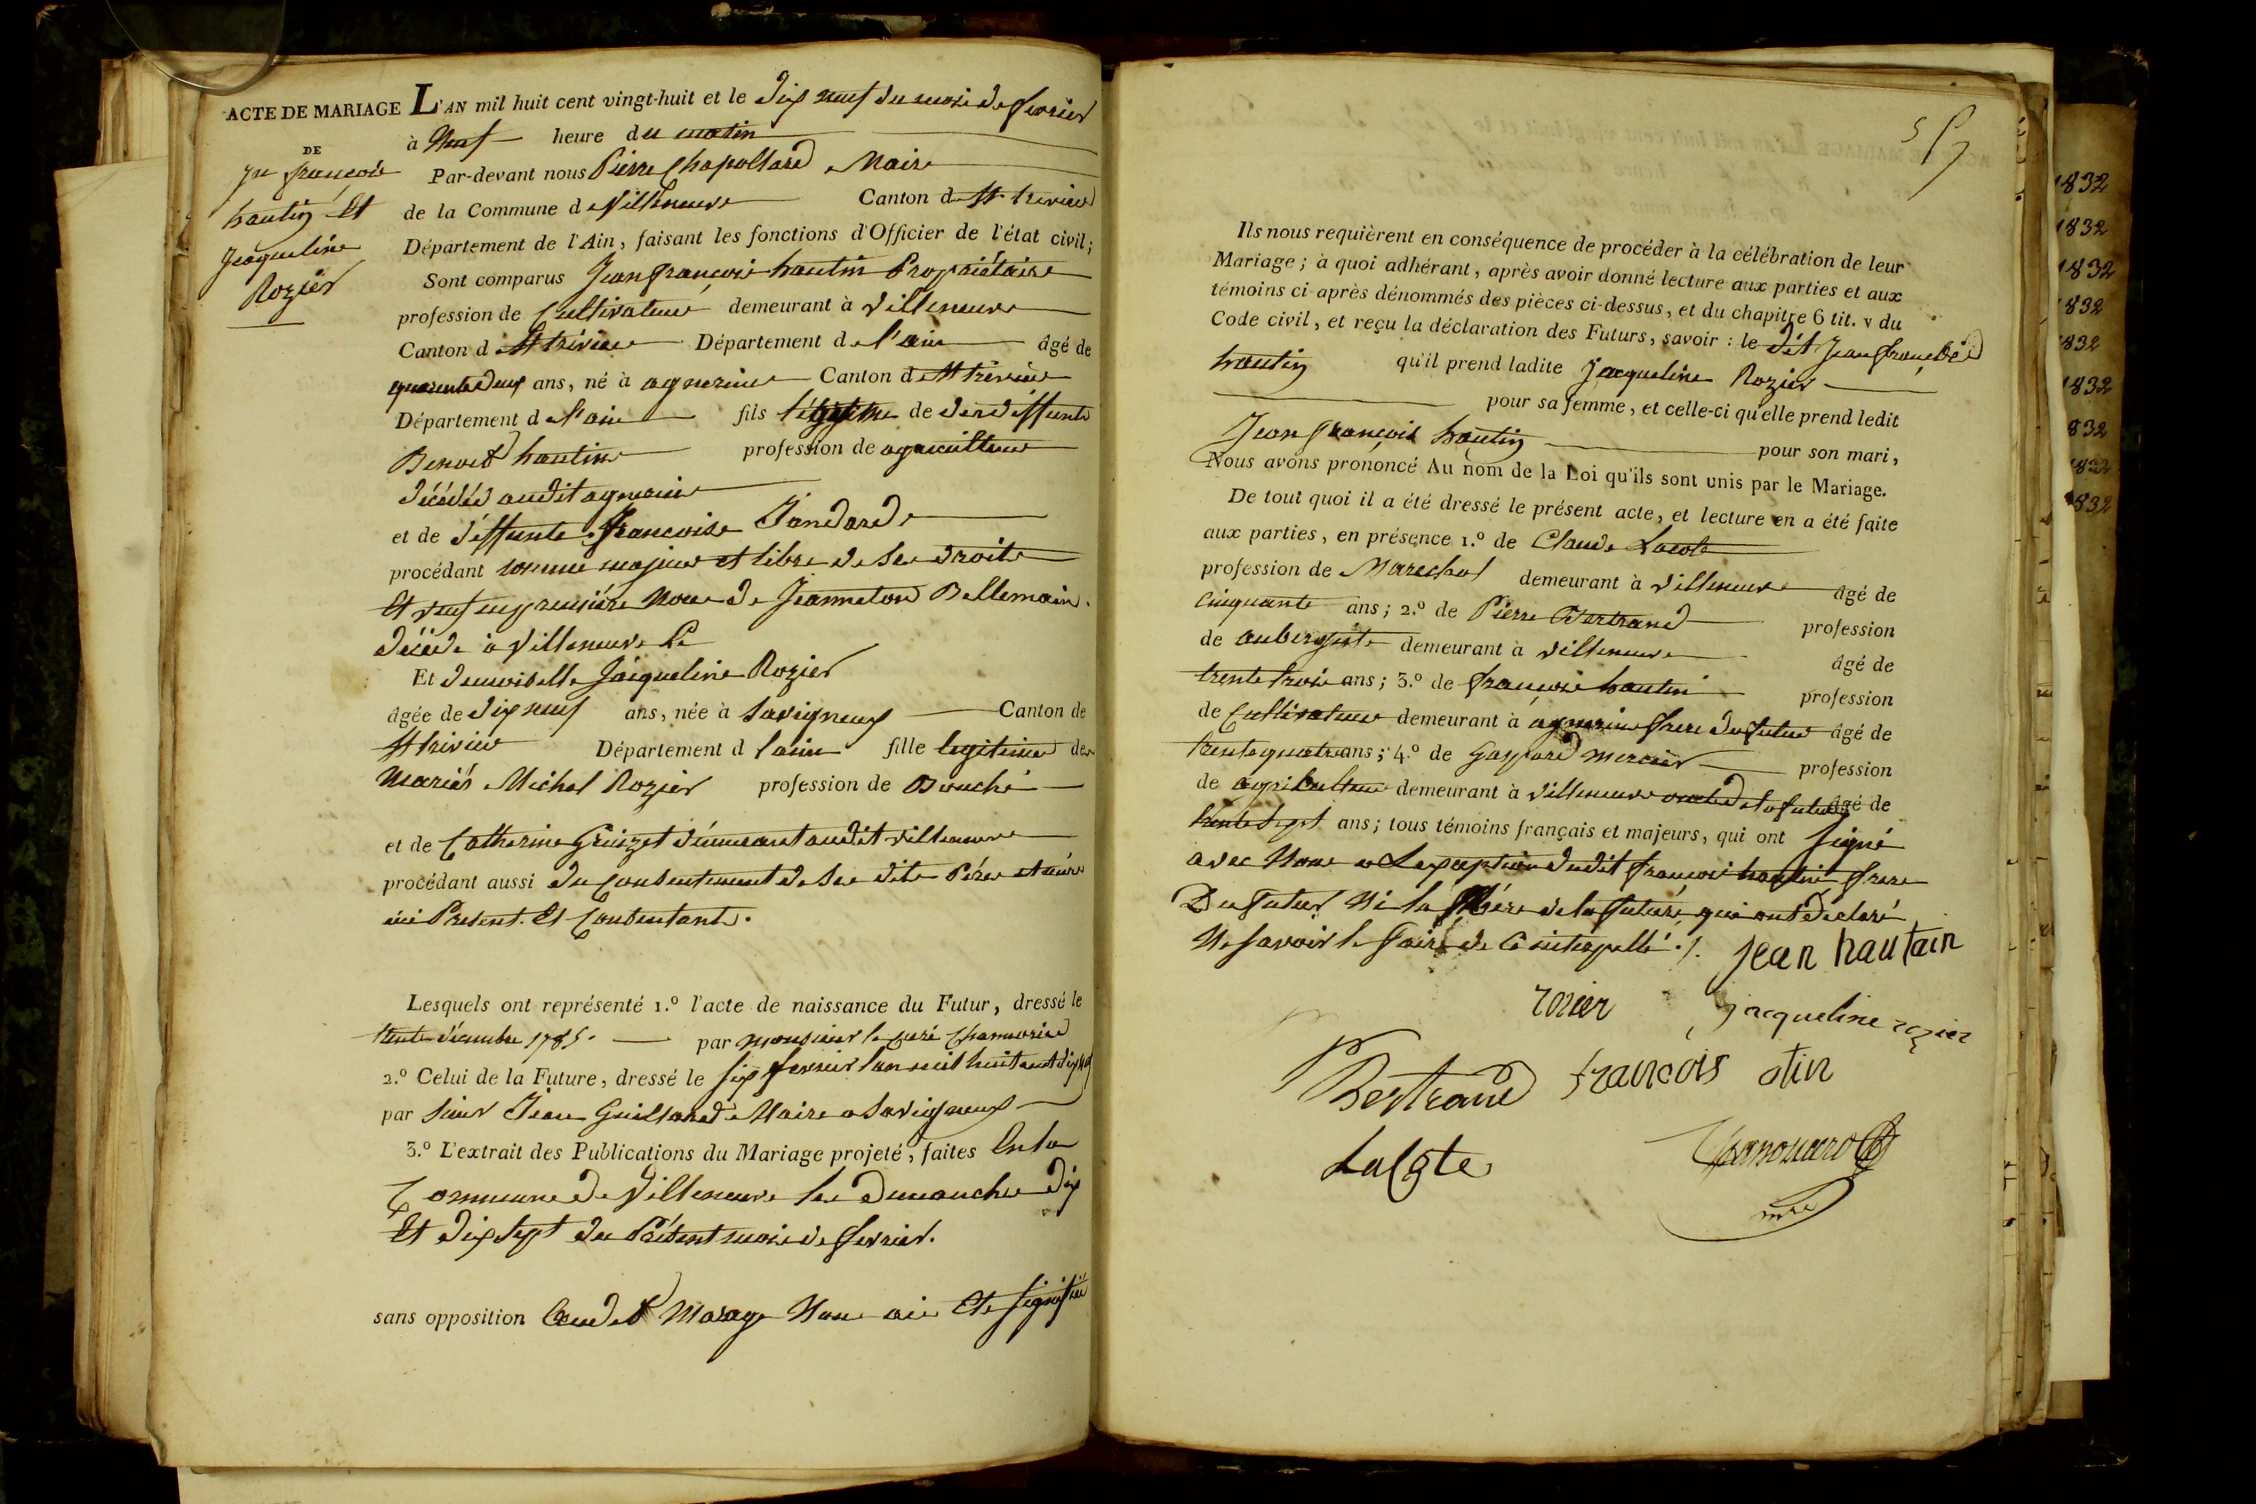 ACTE DE MARIAGE
DE
Jn françois
hautin Et
Jacqueline
Rozier
L'AN mil huit cent vingt-huit et le dix neuf du mois de fevrier
à Neuf heure du matin
Par-devant nous Pierre Chapollard Maire
de la Commune de Villeneuve Canton de St trivier
Département de l'Ain, faisant les fonctions d'Officier de l'état civil;
Sont comparus Jean françois hautin Propriétaire
profession de Cultivateur demeurant à villeneuve
Canton d St trivier Département de l'ain âgé de
quarante deux ans, né à Canton de St trivier
Département de l'ain fils légitime de deffunts
Benoit hautin profession de agriculteur
décédé audit
et de deffunte francoise Jandard
procédant comme majeur et libre de ses droits
Et veuf en première Noce de Jeanneton Bellemain
décédé à Villeneuve Le
Et demoiselle Jacqueline Rozier
âgée de dix neuf ans, née à Savigneux Canton de
St trivier Département d l'ain fille legitime des
Mariés Michel Rozier profession de Bouché
et de Catherine demeurant audit villeneuve
procédant aussi du Consentement de Ses dits Père et mère
ici Present Et Consentant.
Lesquels ont représenté 1.º l'acte de naissance du Futur, dressé le
trente décembre 1785. par monsieur le Curé
2.º Celui de la Future, dressé le six fevrier l'an mil huit cent
par sieur Jean Guillard Maire a Savigneux
3.º L'extrait des Publications du Mariage projeté, faites En la
Commune de Villeneuve les dimanches dix
Et dix sept du Présent mois de fevrier.
sans opposition audit Mariage Nous Ete signifié
Ils nous requièrent en conséquence de procéder à la célébration de leur
Mariage; à quoi adhérant, après avoir donné lecture aux parties et aux
témoins ci-après dénommés des pièces ci-dessus, et du chapitre 6 tit. v du
Code civil, et reçu la déclaration des Futurs, savoir: le dit Jean françois
hautin qu'il prend ladite Jacqueline Rozier
pour sa femme, et celle-ci qu'elle prend ledit
Jean françois hautin pour son mari,
Nous avons prononcé Au nom de la Loi qu'ils sont unis par le Mariage.
De tout quoi il a été dressé le présent acte, et lecture en a été faite
aux parties, en présence 1.º de Claude Lacote
profession de Marechal demeurant à villeneuve âgé de
cinquante ans; 2.º de Pierre Bertrand profession
de aubergiste demeurant à villeneuve âgé de
trente trois ans; 3.º de françois hautin profession
de Cultivateur demeurant à frere du futur âgé de
trente quatre ans; 4.º de Gaspard mercier profession
de agriculteur demeurant à villeneuve de la future âgé de
trente sept ans; tous témoins français et majeurs, qui ont signé
avec Nous a L'exception dudit françois hautin frere
Du futur Ni la Mère de la future qui ont déclaré
Ne savoir le faire de Ce interpellé ./.
jean hautain
rozier jacqueline rozier
Bertrand françois otin
LaCote
mre
1832
1832
1832
1832
1832
1832
832
1832
1832